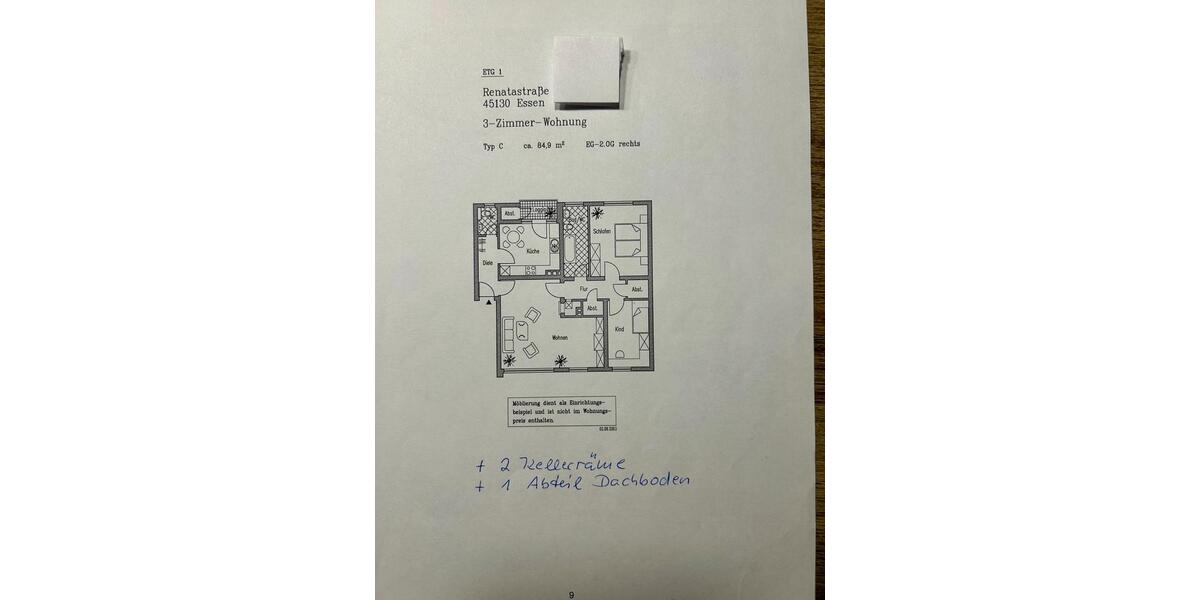 ETG 1
Renatastraße
45130 Essen
3-Zimmer-Wohnung
Typ C ca. 84,9 m² EG-2.OG rechts
Abst.
Loggia
Schlafen
Küche
Diele
Flur
Abst.
Abst.
Kind
Wohnen
Möblierung dient als Einrichtungs-
beispiel und ist nicht im Wohnungs-
preis enthalten.
+ 2 Kellerräume
+ 1 Abteil Dachboden
9